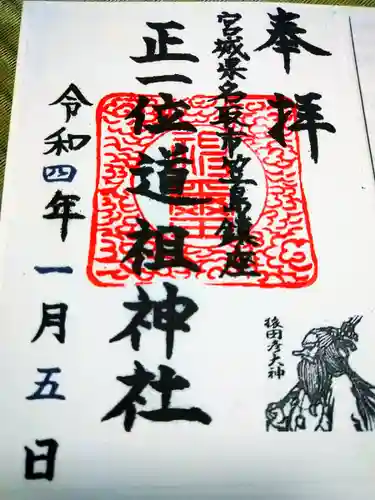 奉拝
宮城県名取市笠島鎮座
正一位道祖神社
令和四年一月五日
猿田彦大神